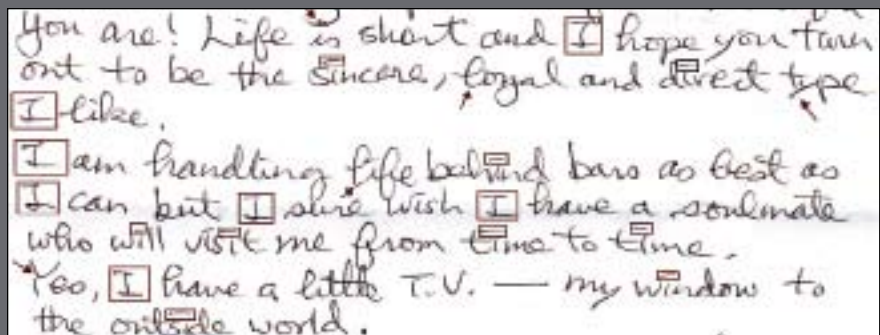 You are! Life is short and I hope you turn
out to be the sincere, loyal and direct type
I like.
I am handling life behind bars as best as
I can but I sure wish I have a soulmate
who will visit me from time to time.
Yes, I have a little T.V. — my window to
the outside world.